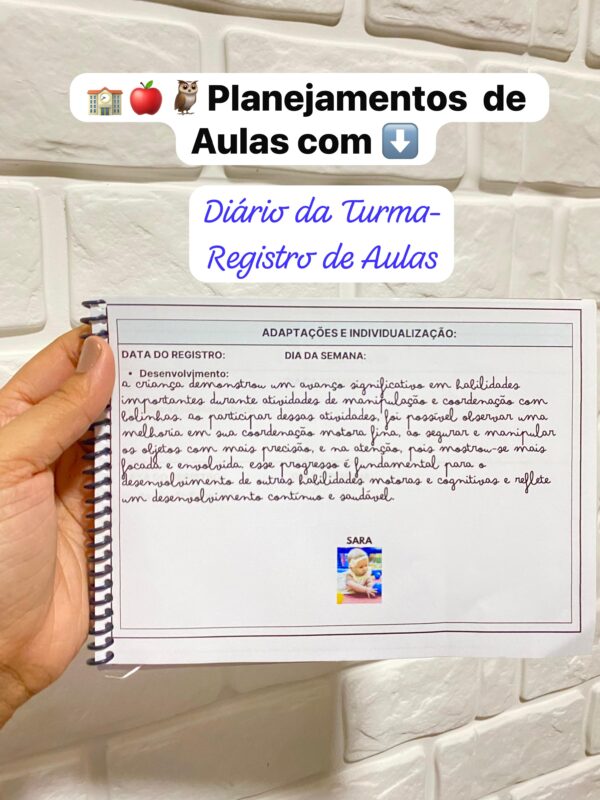 🏫🍎🦉Planejamentos de
Aulas com ⬇️
Diário da Turma-
Registro de Aulas
ADAPTAÇÕES E INDIVIDUALIZAÇÃO:
DATA DO REGISTRO: DIA DA SEMANA:
• Desenvolvimento:
a criança demonstrou um avanço significativo em habilidades
importantes durante atividades de manipulação e coordenação com
bolinhas. ao participar dessas atividades, foi possível observar uma
melhoria em sua coordenação motora fina, ao segurar e manipular
os objetos com mais precisão, e na atenção, pois mostrou-se mais
focada e envolvida. esse progresso é fundamental para o
desenvolvimento de outras habilidades motoras e cognitivas e reflete
um desenvolvimento contínuo e saudável.
SARA